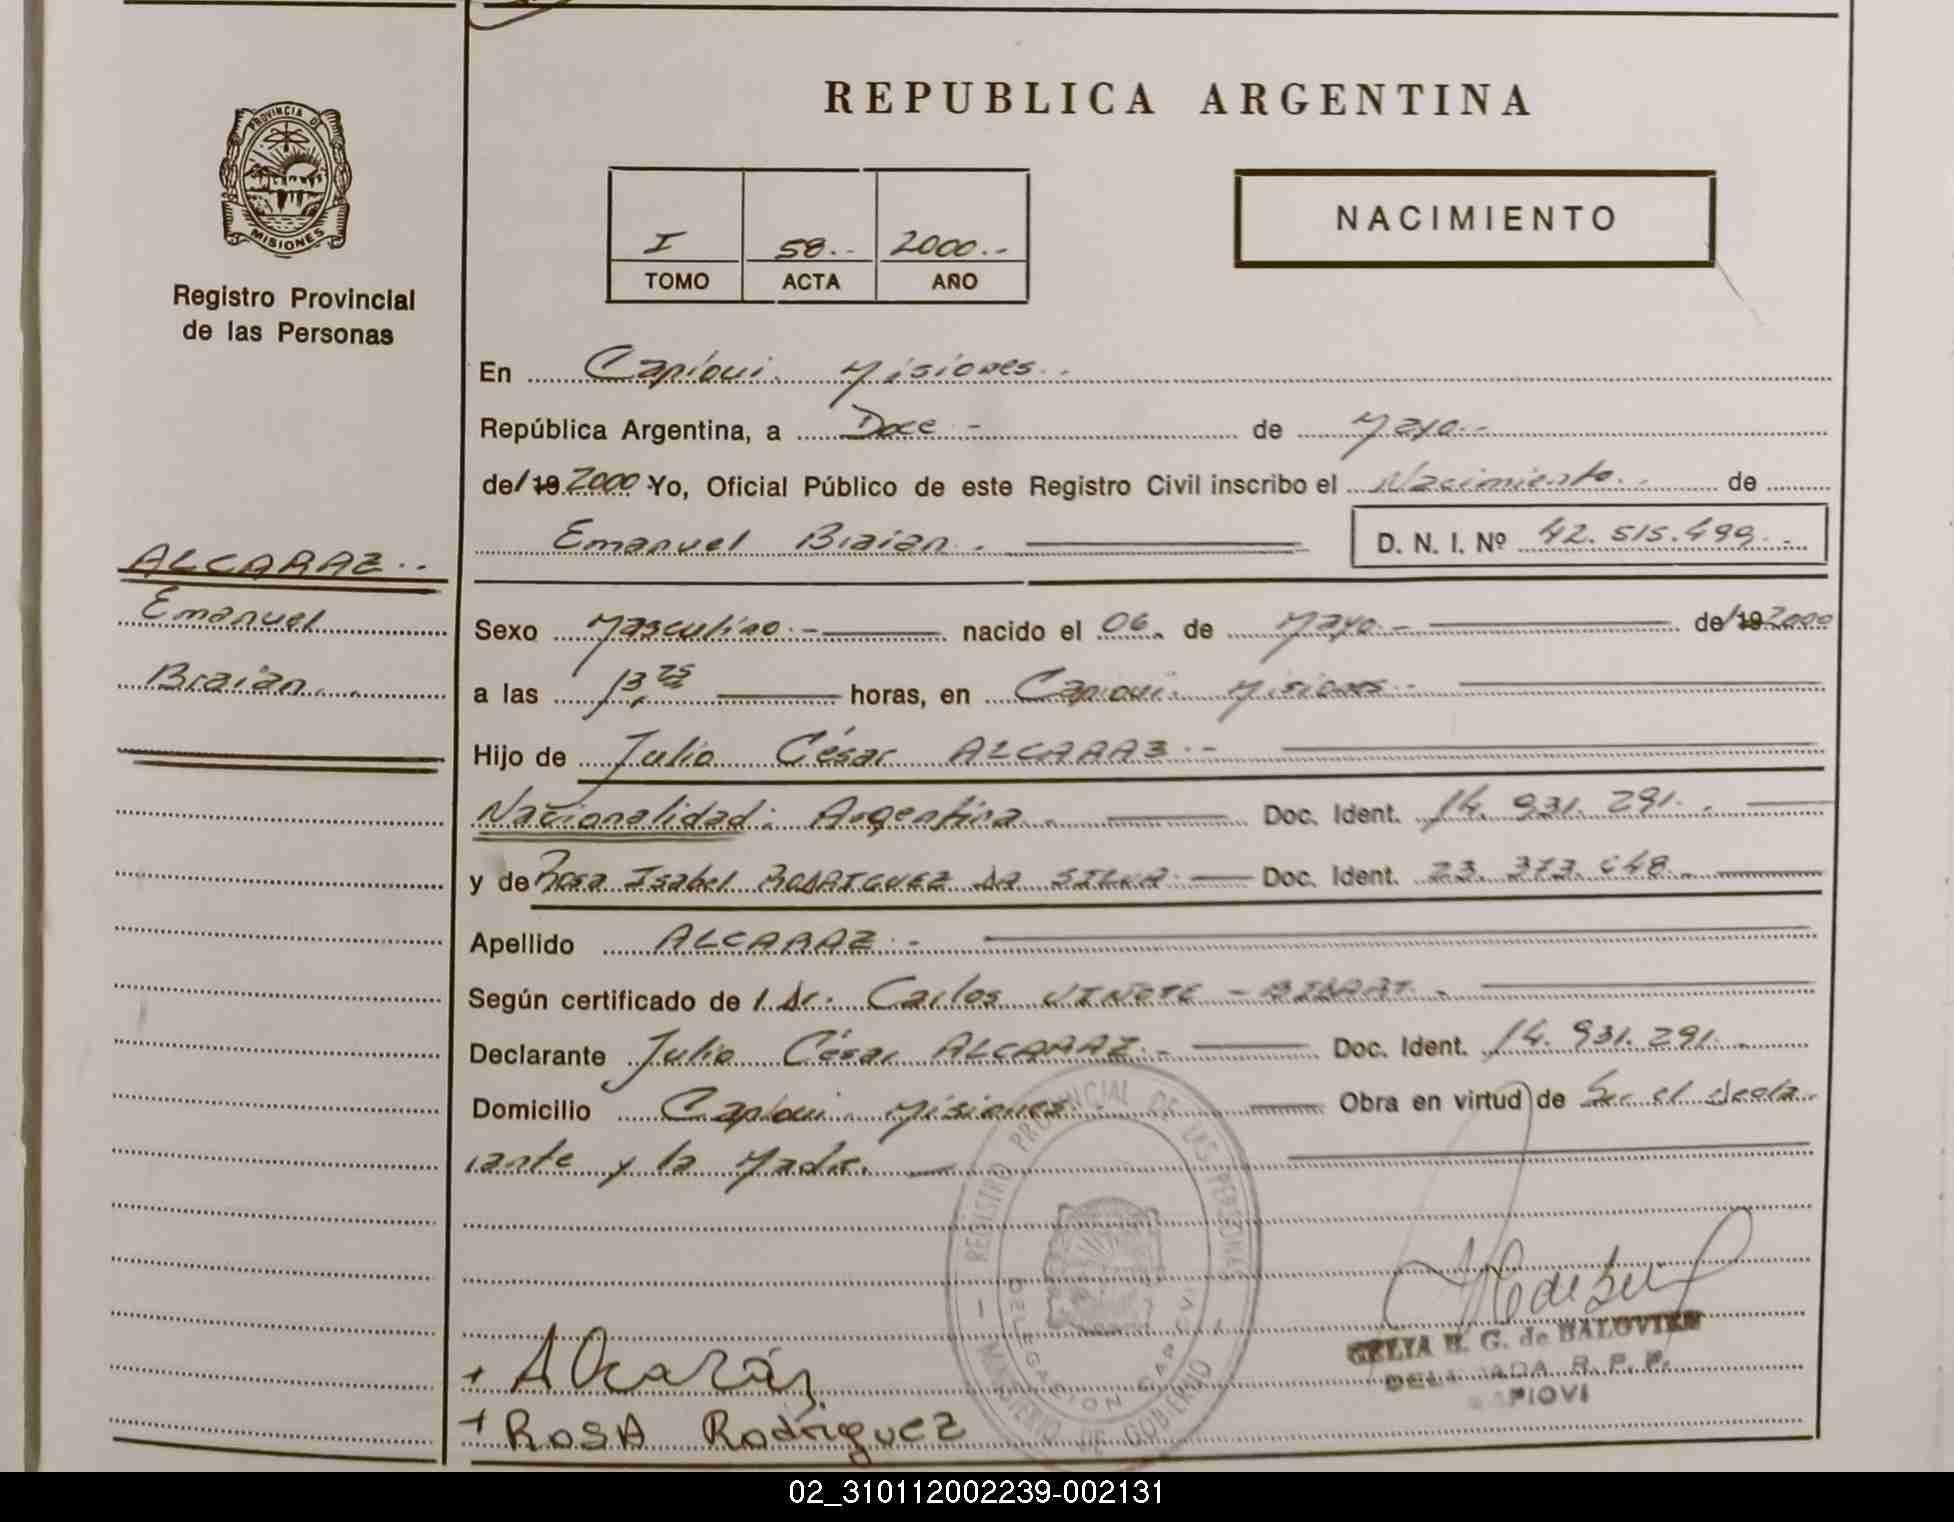 REPUBLICA ARGENTINA
PROVINCIA DE
MISIONES
Registro Provincial
de las Personas
I 58.- 2000.-
TOMO ACTA AÑO
NACIMIENTO
En Capioui. Misiones.-
República Argentina, a Doce - de Mayo.-
de/19 2000 Yo, Oficial Público de este Registro Civil inscribo el Nacimiento.- de
Emanuel Braian.
D. N. I. Nº 42.515.499.-
ALCARAZ.-
Emanuel
Braian.
Sexo Masculino.- nacido el 06. de Mayo.- de/19 2000
a las 13,25 horas, en Capioui. Misiones.-
Hijo de Julio César ALCARAZ.-
Nacionalidad: Argentina. Doc. Ident. 14.931.291.-
y de Rosa Isabel RODRIGUEZ DA SILVA.- Doc. Ident. 23.373.648.-
Apellido ALCARAZ.-
Según certificado de /. Dr. Carlos
Declarante Julio César ALCARAZ.- Doc. Ident. 14.931.291.
Domicilio Capioui. Misiones.- Obra en virtud de Ser el decla-
rante y la Madre.
REGISTRO PROVINCIAL DE LAS PERSONAS
DELEGACION CAPIOVI
MINISTERIO DE GOBIERNO
CELIA H. G. de BALOVIER
DELEGADA R. P. P.
CAPIOVI
+ Alcaráz
+ ROSA Rodríguez
02_310112002239-002131